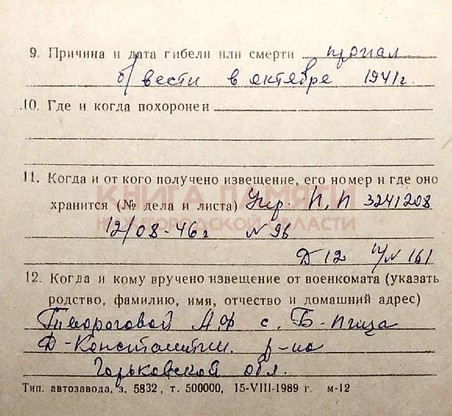 9. Причина и дата гибели или смерти пропал
б/ вести в октябре 1941г.
10. Где и когда похоронен
11. Когда и от кого получено извещение, его номер и где оно
хранится (№ дела и листа) Упр П,П 3241208
КНИГА ПАМЯТИ
НИЖЕГОРОДСКОЙ ОБЛАСТИ
12/08-46г N 96
Д 12 N 161
12. Когда и кому вручено извещение от военкомата (указать
родство, фамилию, имя, отчество и домашний адрес)
Твороговой А Ф с. Б-Пица
Д-Константин. р-на
Горьковской обл.
Тип. автозавода, з. 5832, т. 500000, 15-VIII-1989 г. м-12